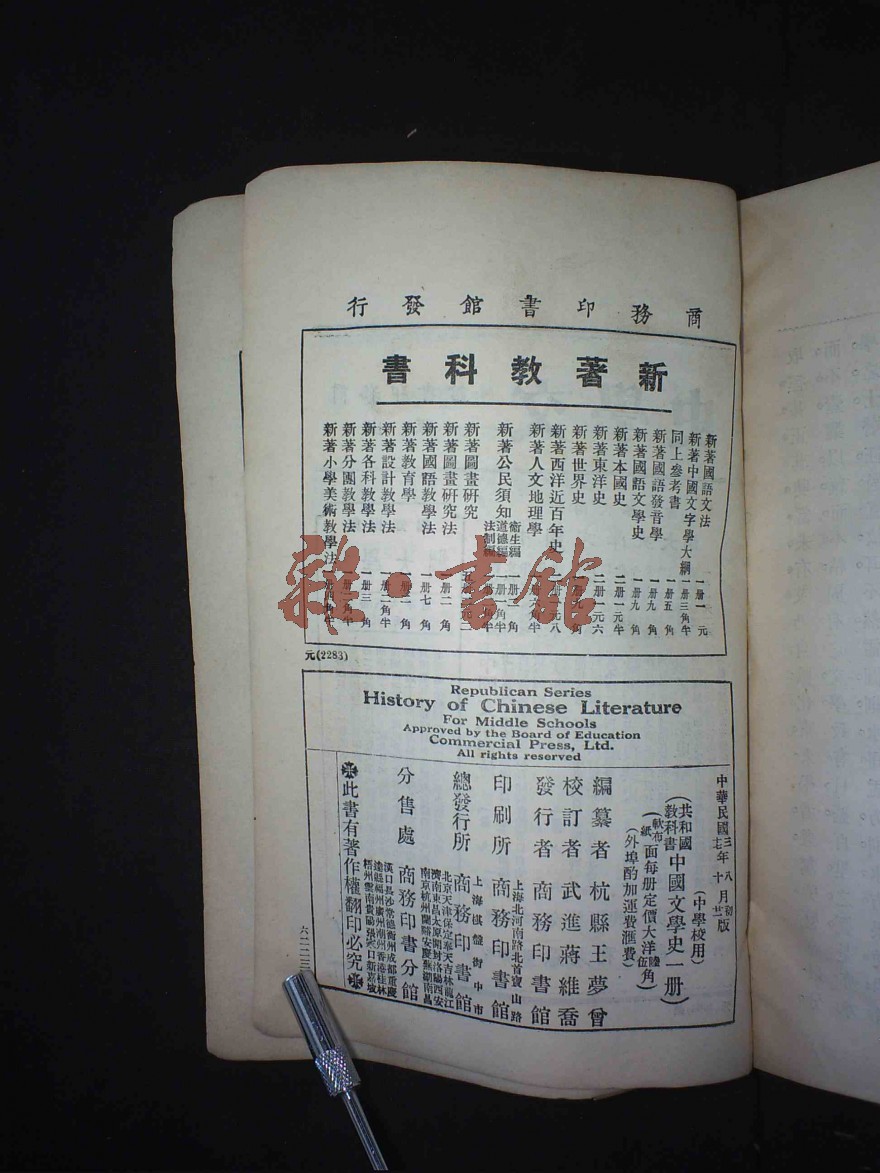 商務印書館發行
新著教科書
新著國語文法 一册一元
新著中國文字學大綱 一册三角半
同上參考書 一册五角
新著國語發音學 一册九角
新著國語文學史 一册一元半
新著本國史 二册一元半
新著東洋史 二册一元六
新著世界史
新著西洋近百年史
新著人文地理學
新著公民須知 衞生編 道德編 法制編
新著圖畫研究
新著圖畫研究法 一册二角
新著國語教學法 一册七角
新著教育學
新著設計教學法 一册二角半
新著各科教學法 一册三角
新著分團教學法
新著小學美術教學法
元(2283)
Republican Series
History of Chinese Literature
For Middle Schools
Approved by the Board of Education
Commercial Press, Ltd.
All rights reserved
中華民國三年八月初版
十七年十月廿一版
(中學校用)
(共和國教科書中國文學史一册)
(軟布紙面每册定價大洋陸伍角)
(外埠酌加運費匯費)
編纂者 杭縣王夢曾
校訂者 武進蔣維喬
發行者 商務印書館
印刷所 上海北河南路北首寶山路 商務印書館
總發行所 上海棋盤街中市 商務印書館
分售處 商務印書分館
北京天津保定奉天吉林龍江
濟南東昌太原開封洛陽西安
南京杭州蘭谿安慶蕪湖南昌
漢口長沙常德衡州成都重慶
福州廣州潮州香港桂林
梧州雲南貴陽張家口新嘉坡
此書有著作權翻印必究
六二二三
雜·書館